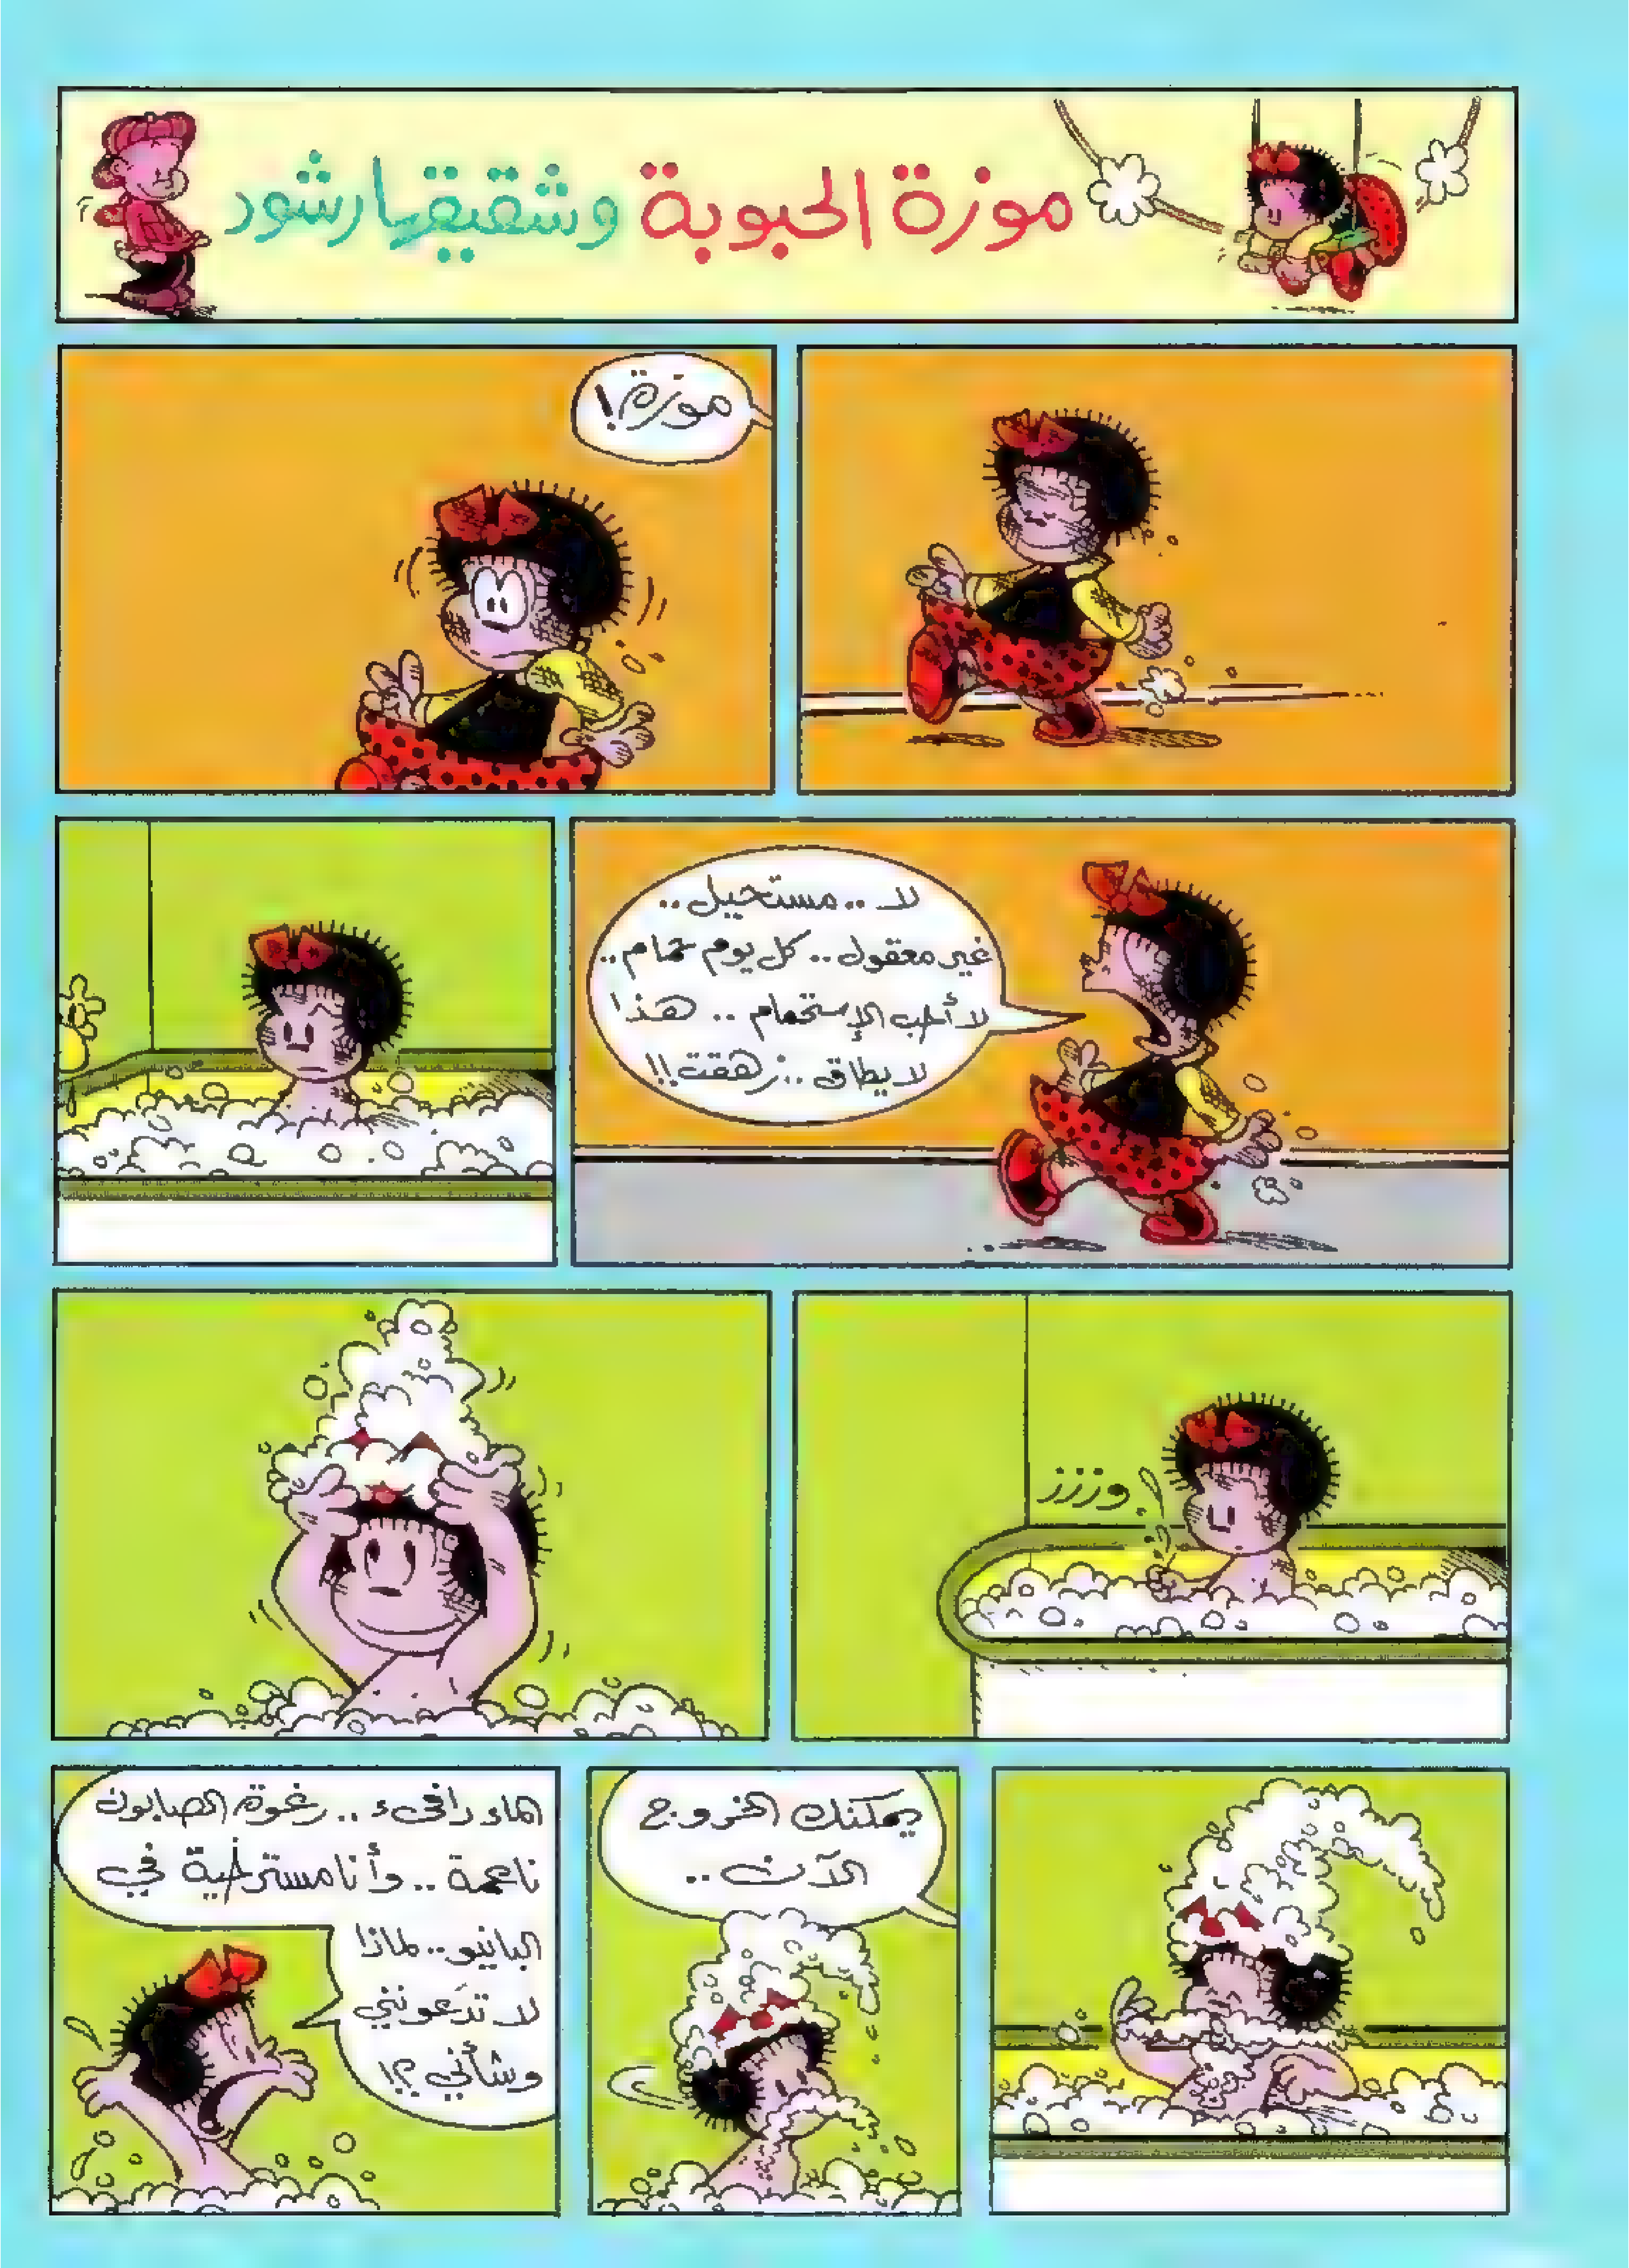 موزة الحبوبة وشقيقها رشود
موزة!
لا .. مستحيل ..
غير معقول .. كل يوم حمام ..
لا أحب الإستحمام .. هذا
لا يطاق .. زهقت !!
وززز
يمكنك الخروج
الآن ..
الماء دافىء .. رغوة الصابون
ناعمة .. وأنا مسترخية في
البانيو .. لماذا
لا تدَعونني
وشأني ؟!